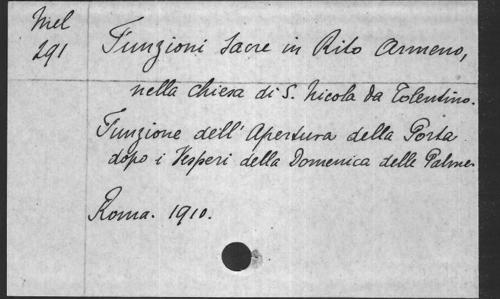 Mel
291
Funzioni Sacre in Rito Armeno,
nella chiesa di S. Nicola da Tolentino.
Funzione dell'Apertura della Porta
dopo i Vesperi della Domenica delle Palme.
Roma. 1910.